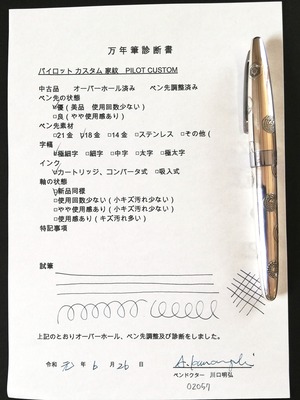 万年筆診断書
パイロット カスタム 家紋　PILOT CUSTOM
中古品　オーバーホール済み　ペン先調整済み
ペン先の状態
☑優（美品　使用回数少ない）
□良（やや使用感あり）
ペン先素材
□21金 ☑18金 □14金 □ステンレス □その他（
字幅
☑極細字 □細字 □中字 □太字 □極太字
インク
☑カートリッジ、コンバータ式 □吸入式
軸の状態
☑新品同様
□使用回数少ない（小キズ汚れ少ない）
□やや使用感あり（小キズ汚れ少ない）
□使用感あり（キズ汚れ多い）
特記事項
試筆
上記のとおりオーバーホール、ペン先調整及び診断をしました。
令和 元 年 6 月 26 日
ペンドクター 川口明弘
02057